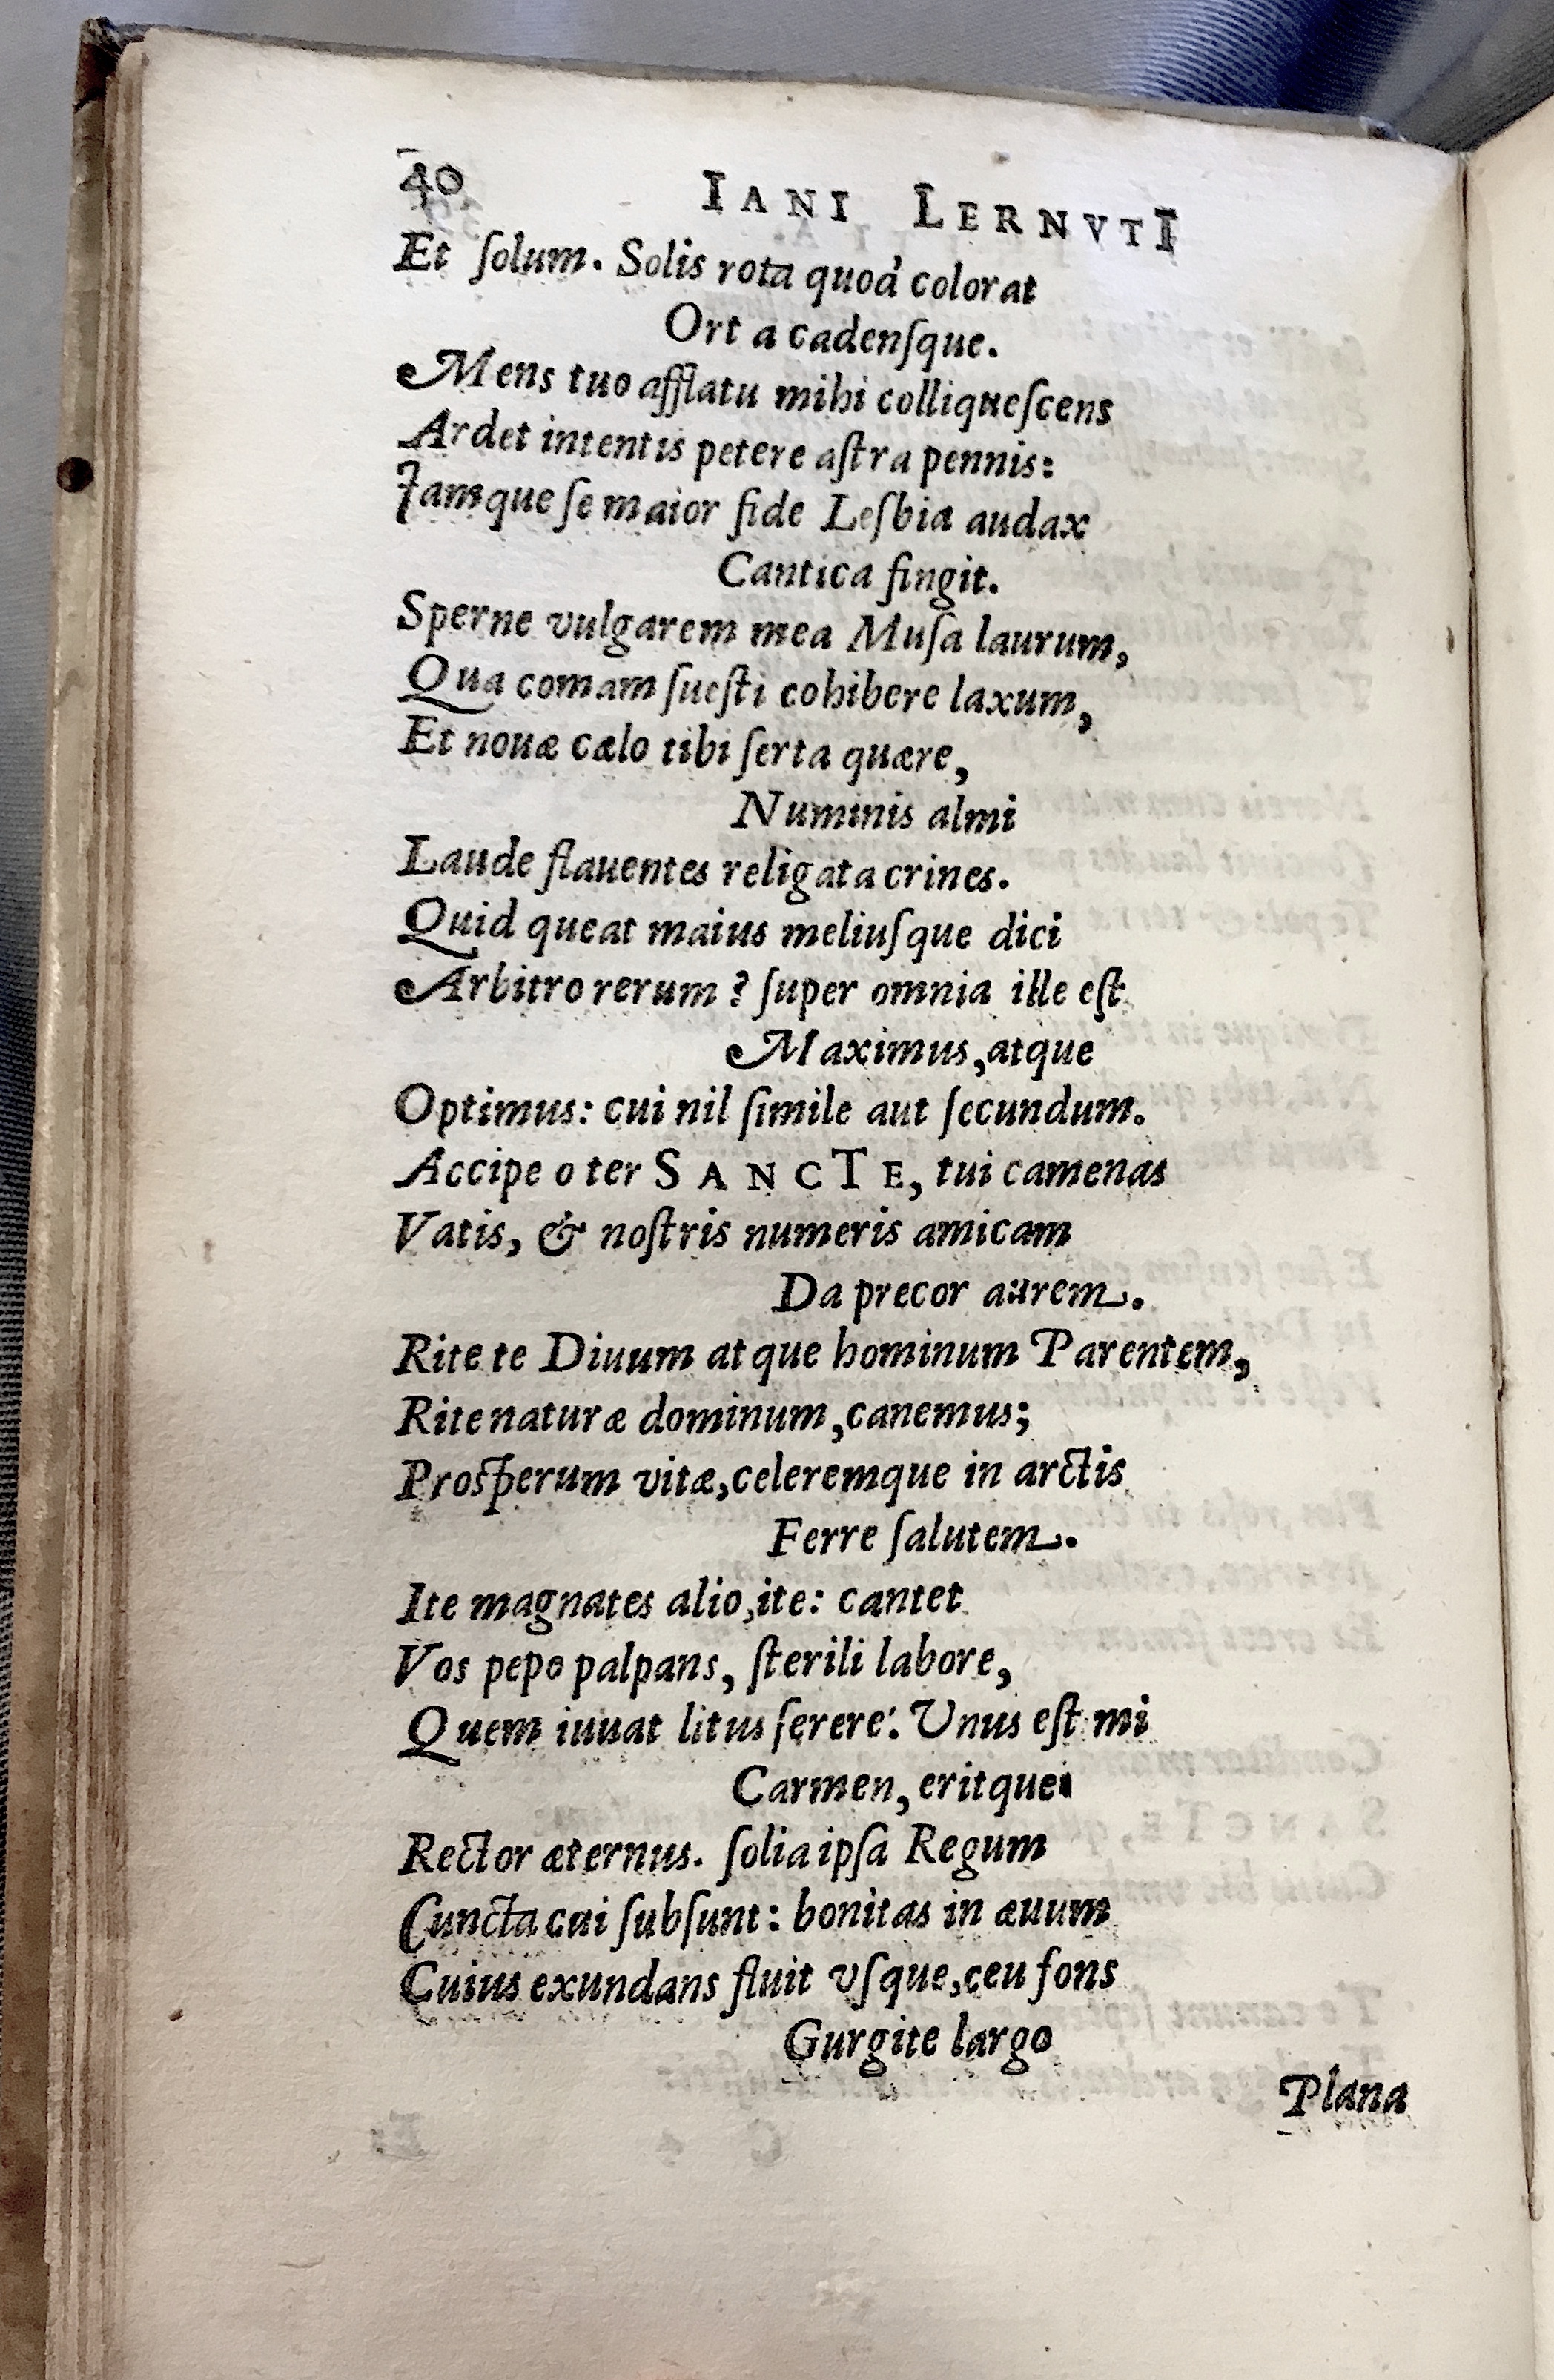 40 IANI LERNVTI
Et ſolum. Solis rota quod colorat
Orta cadenſque.
Mens tuo afflatu mihi colliqueſcens
Ardet intentis petere aſtra pennis:
Jamque ſe maior fide Leſbia audax
Cantica fingit.
Sperne vulgarem mea Muſa laurum,
Qua comam ſueſti cohibere laxum,
Et nouæ cælo tibi ſerta quære,
Numinis almi
Laude flauentes religata crines.
Quid queat maius meliuſque dici
Arbitro rerum? ſuper omnia ille eſt
Maximus, atque
Optimus: cui nil ſimile aut ſecundum.
Accipe o ter SANCTE, tui camenas
Vatis, & noſtris numeris amicam
Da precor aurem.
Rite te Diuum atque hominum Parentem,
Rite naturæ dominum, canemus;
Proſperum vitæ, celeremque in arctis
Ferre ſalutem.
Ite magnates alio, ite: cantet
Vos pepo palpans, ſterili labore,
Quem iuuat litus ſerere: Unus eſt mi
Carmen, eritque
Rector æternus. ſolia ipſa Regum
Cuncta cui ſubſunt: bonitas in æuum
Cuius exundans fluit vſque, ceu fons
Gurgite largo
Plana